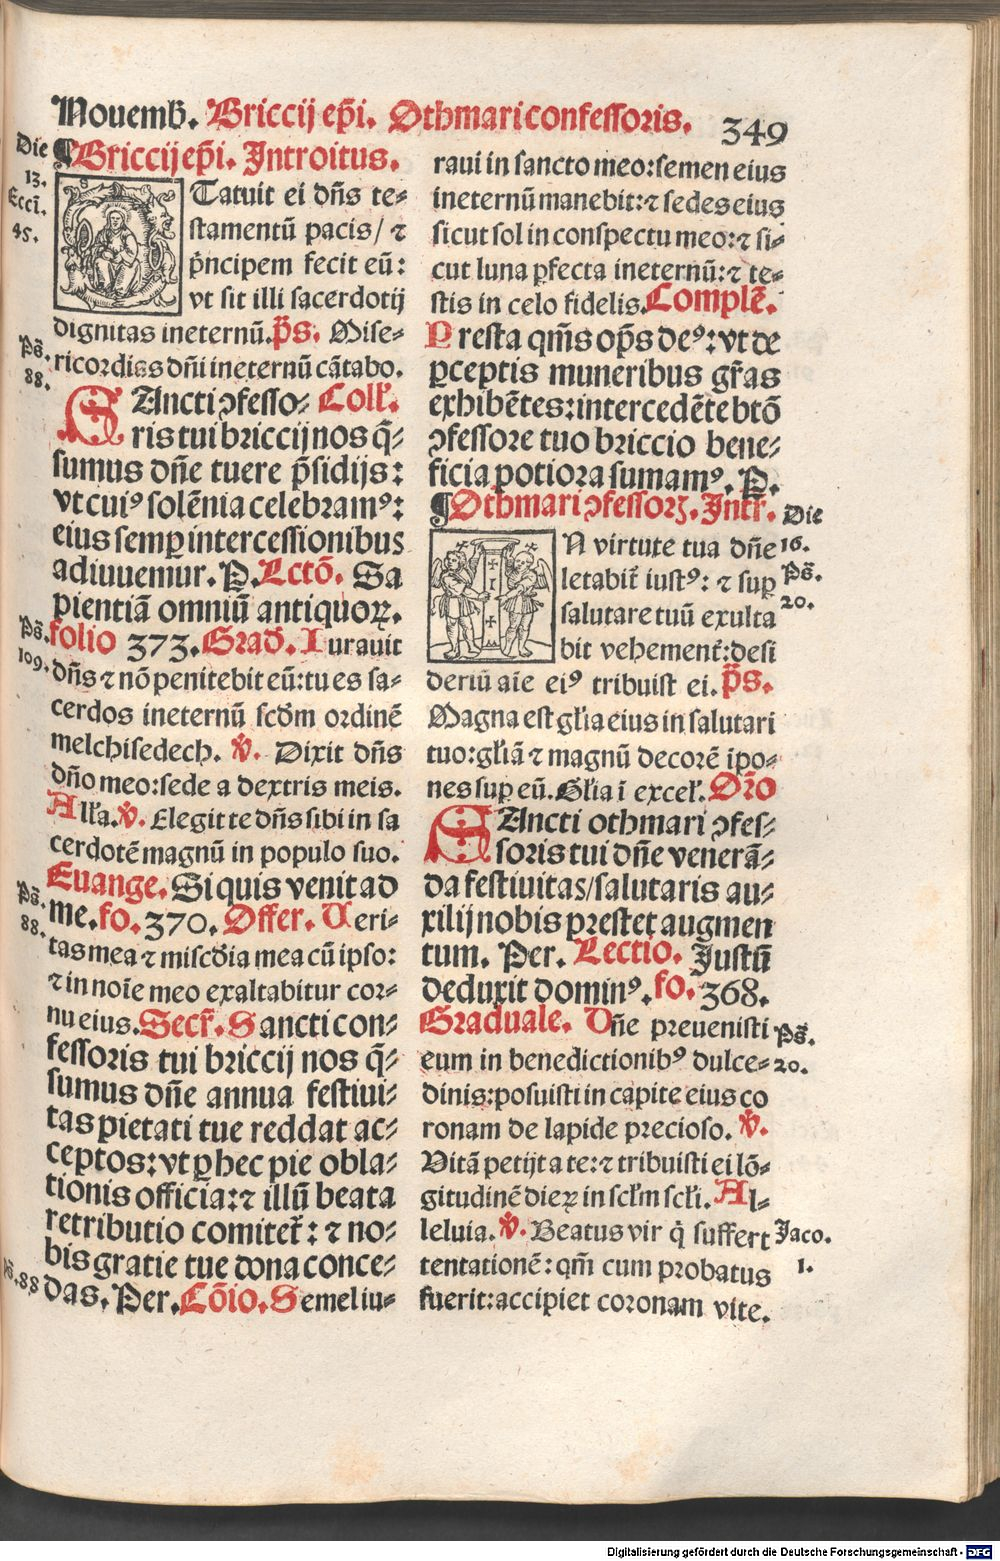 Nouemb̄. Briccij ep̄i. Othmari confessoris. 349
Die
13.
Eccī.
45.
¶Briccij ep̄i. Introitus.
STatuit ei dn̄s te⸗
stamentū pacis/ ⁊
pͥncipem fecit eū:
vt sit illi sacerdotij
dignitas ineternū. p̄s. Mise⸗
ricordias dn̄i ineternū cātabo.
Ps̄.
88.
SAncti ꝯfesso⸗ Coll̄.
ris tui briccij nos q̄⸗
sumus dn̄e tuere p̄sidijs:
vt cuiꝰ solēnia celebramꝰ:
eius semꝑ intercessionibus
adiuuemur. P. Lctō. Sa
pientiā omniū antiquoꝝ.
folio 373. Grad̄. Iurauit
Ps̄.
109.
dn̄s ⁊ nō penitebit eū: tu es sa⸗
cerdos ineternū scd̄m ordinē
melchisedech. ℣. Dixit dn̄s
dn̄o meo: sede a dextris meis.
All̄a. ℣. Elegit te dn̄s sibi in sa
cerdotē magnū in populo suo.
Euange. Si quis venit ad
me. fo. 370. Offer. Ueri⸗
Ps̄.
88.
tas mea ⁊ misc̄dia mea cū ipso:
⁊ in noīe meo exaltabitur cor⸗
nu eius. Secr̄. Sancti con⸗
fessoris tui briccij nos q̄⸗
sumus dn̄e annua festiui⸗
tas pietati tue reddat ac⸗
ceptos: vt ꝑ hec pie obla⸗
tionis officia: ⁊ illū beata
retributio comitet᷑: ⁊ no⸗
bis gratie tue dona conce⸗
das. Per. Cōio. Semel iu⸗
Ps̄. 88
raui in sancto meo: semen eius
ineternū manebit: ⁊ sedes eius
sicut sol in conspectu meo: ⁊ si⸗
cut luna ꝑfecta ineternū: ⁊ te⸗
stis in celo fidelis. Complē.
Presta qm̄s op̄s deꝰ: vt de
ꝑceptis muneribus gr̄as
exhibētes: intercedēte btō
ꝯfessore tuo briccio bene⸗
ficia potiora sumamꝰ. P.
¶Othmari ꝯfessoꝝ. Intr.
Die
16.
Ps̄.
20.
IN virtute tua dn̄e
letabit᷑ iustꝰ: ⁊ suꝑ
salutare tuū exulta
bit vehement᷑: desi
deriū aīe eiꝰ tribuist ei. p̄s.
Magna est gl̄ia eius in salutari
tuo: gl̄iā ⁊ magnū decorē ipo⸗
nes suꝑ eū. Gl̄ia ī excel̄. Or̄o
SAncti othmari ꝯfes⸗
soris tui dn̄e venerā⸗
da festiuitas/salutaris au⸗
xilij nobis prestet augmen
tum. Per. Lectio. Justū
deduxit dominꝰ. fo. 368.
Graduale. Dn̄e preuenisti
Ps̄.
20.
eum in benedictionibꝰ dulce⸗
dinis: posuisti in capite eius co
ronam de lapide precioso. ℣.
Vitā petijt a te: ⁊ tribuisti ei lō⸗
gitudinē dieꝝ in scl̄m scl̄i. Al⸗
leluia. ℣. Beatus vir qͥ suffert
Jaco.
1.
tentationē: qm̄ cum probatus
fuerit: accipiet coronam vite.
Digitalisierung gefördert durch die Deutsche Forschungsgemeinschaft - DFG